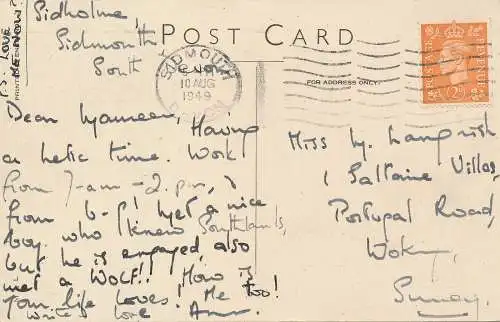 Sidholme,
Sidmouth
South
P.S. LOVE
ME NOW?
POST CARD
FOR ADDRESS ONLY
SIDMOUTH
10 AUG
1949
DEVON
POSTAGE
2D
Dear Maureen, Having
a hetic time. Work
from 7-am - 2.pm, &
from 6-8! Met a nice
boy who I knew Southlands,
but he is engaged, also
met a WOLF!! How is
your life loves. Me too!
Write Love Ann.
Miss M. Langrish
1 Saltaire Villas,
Portugal Road,
Woking,
Surrey.